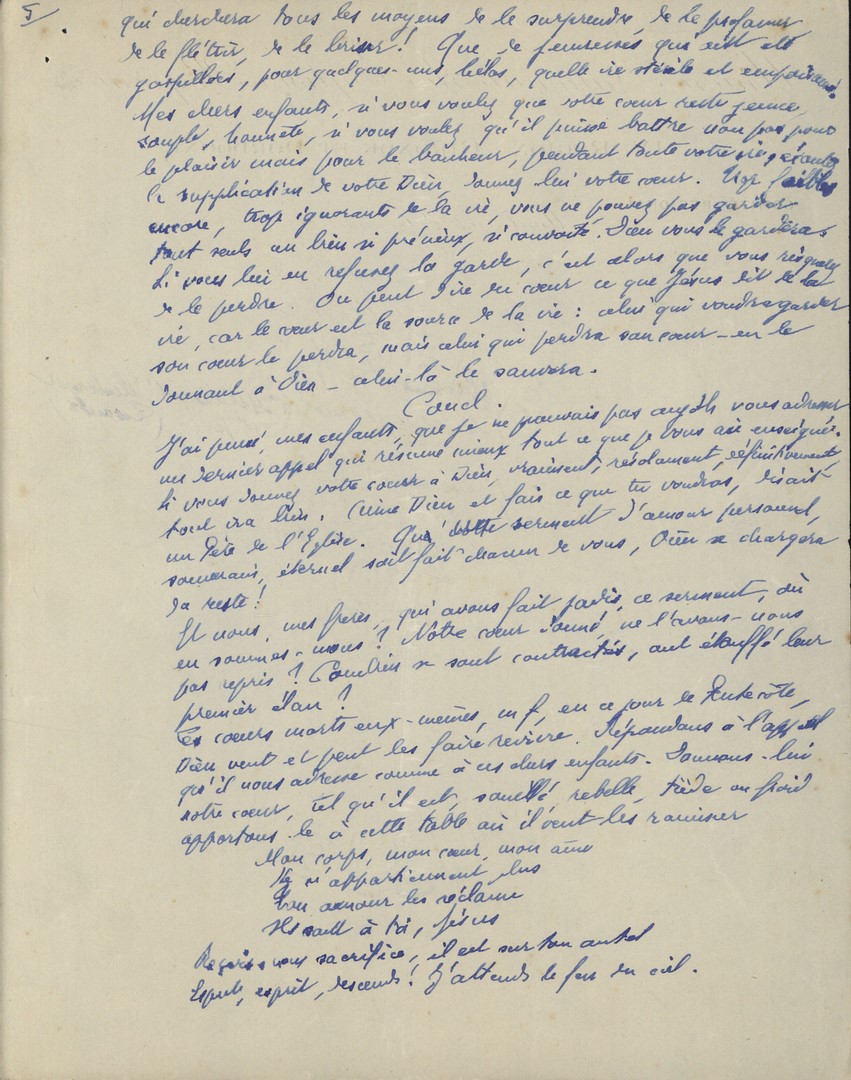 5
qui cherchera tous les moyens de le surprendre, de le profaner
de le flétrir, de le briser ! Que de jeunesses qui ont été
gaspillées, pour quelques-uns, hélas, quelle vie stérile et empoisonnée.
Mes chers enfants, si vous voulez que votre coeur reste jeune,
souple, honnête, si vous voulez qu'il puisse battre non pas pour
le plaisir mais pour le bonheur, pendant toute votre vie, écoutez
la supplication de votre Dieu, donnez lui votre coeur. Trop faibles
encore, trop ignorants de la vie, vous ne pouvez pas garder
tout seuls un bien si précieux, si convoité. Dieu vous le gardera.
Si vous lui en refusez la garde, c'est alors que vous risquez
de le perdre. On peut dire du coeur ce que Jésus dit de la
vie, car le coeur est la source de la vie : celui qui voudra garder
son coeur le perdra, mais celui qui perdra son coeur - en le
donnant à Dieu - celui-là le sauvera.
Concl.
J'ai pensé, mes enfants, que je ne pouvais pas vous adresser
un dernier appel qui résume mieux tout ce que je vous ai enseigné.
Si vous donnez votre coeur à Dieu, vraiment, résolument, définitivement,
tout ira bien. Aime Dieu et fais ce que tu voudras, disait
un Père de l'Eglise. Que serment d'amour personnel,
souverain, éternel soit fait chacun de vous, Dieu se chargera
du reste !
Et nous, mes frères, qui avons fait jadis, ce serment, où
en sommes-nous ? Notre coeur donné, ne l'avons-nous
pas repris ? Combien se sont contractés, ont étouffé leur
premier élan ?
Ces coeurs morts eux-mêmes, m f, en ce jour de Pentecôte,
Dieu veut et peut les faire revivre. Répondons à l'appel
qu'il nous adresse comme à ces chers enfants. Donnons-lui
notre coeur, tel qu'il est, souillé, rebelle, tiède ou froid
apportons le à cette table où il veut les ranimer
Mon corps, mon coeur, mon âme
Ne m'appartiennent plus
Ton amour les réclame
Ils sont à toi, Jésus
sacrifice, il est sur ton autel
esprit, descends ! J'attends le feu du ciel.